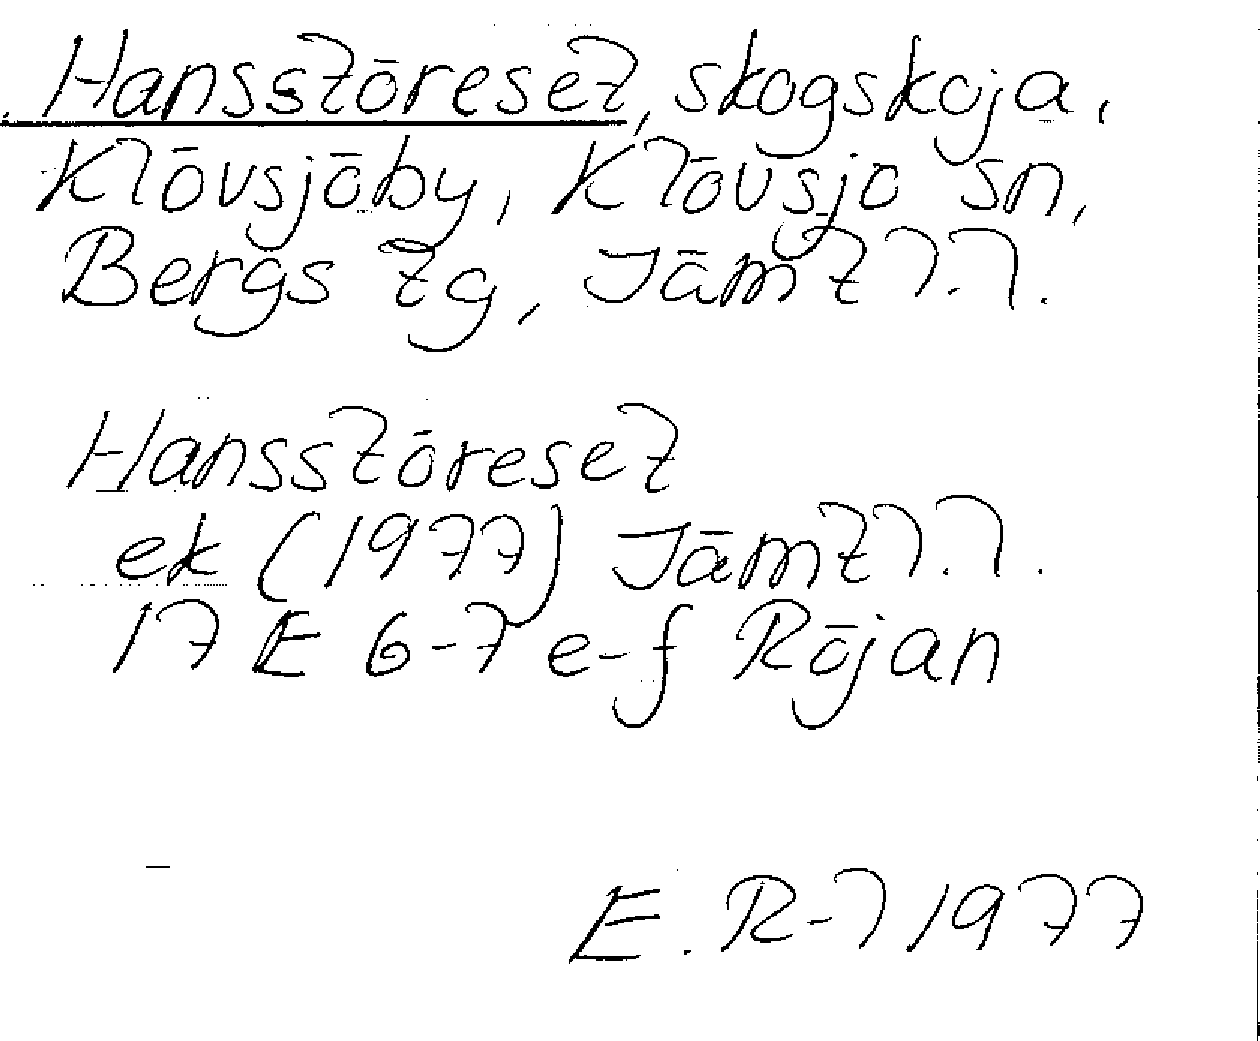 Hansstöreset, skogskoja,
Klövsjöby, Klövsjö sn,
Bergs tg, Jämtl.l.
Hansstöreset
ek (1977) Jämtl.l.
17 E 6-7 e-f Röjan
E. R-l 1977